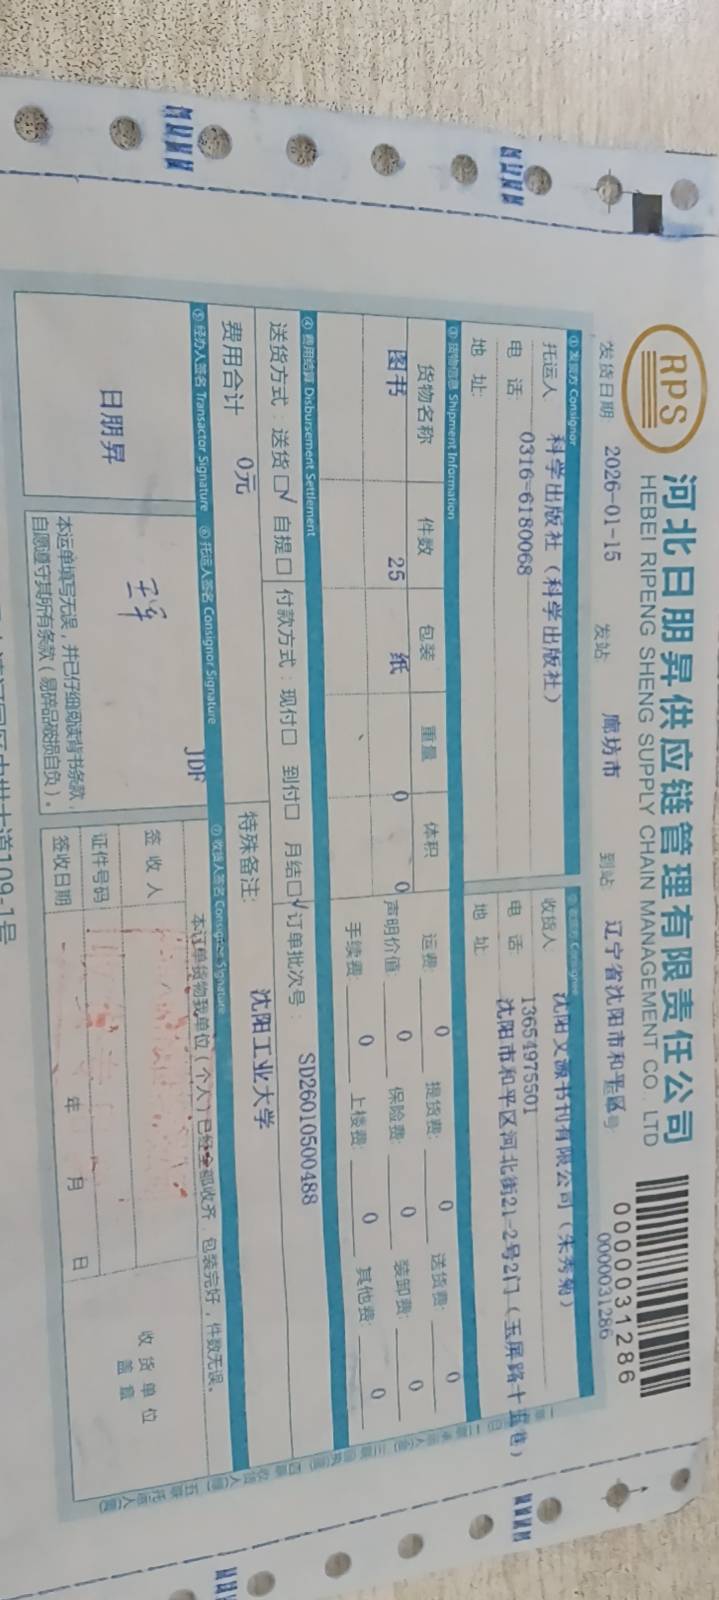 RPS
河北日朋昇供应链管理有限责任公司
HEBEI RIPENG SHENG SUPPLY CHAIN MANAGEMENT CO., LTD
0000031286
0000031286
发货日期 2026-01-15 发站: 廊坊市 到站: 辽宁省沈阳市和平区
① 发货方 Consignor
托运人 科学出版社（科学出版社）
电 话: 0316-6180068
地 址:
收货人 沈阳文源书刊有限公司（朱秀菊）
电 话: 13654975501
地 址 沈阳市和平区河北街21-2号2门（玉屏路十五巷）
③ 货物信息 Shipment Information
货物名称 件数 包装 重量 体积
图书 25 纸 0 0
运费: 0 提货费: 0 送货费: 0
声明价值: 0 保险费: 0 装卸费: 0
手续费: 0 上楼费: 0 其他费: 0
④ 费用结算 Disbursement Settlement
送货方式: 送货☐√ 自提☐ 付款方式: 现付☐ 到付☐ 月结☐√ 订单批次号: SD26010500488
费用合计 0元 特殊备注: 沈阳工业大学
⑤ 经办人签名 Transactor Signature ⑥ 托运人签名 Consignor Signature ⑦ 收货人签名 Consignee Signature
日朋昇
JDF
本运单填写无误，并已仔细阅读背书条款，
自愿遵守其所有条款（易碎品破损自负）。
本订单货物我单位（个人）已经全部收齐，包装完好，件数无误。
签 收 人
证件号码
签收日期 年 月 日
收货单位
盖章
109-1号